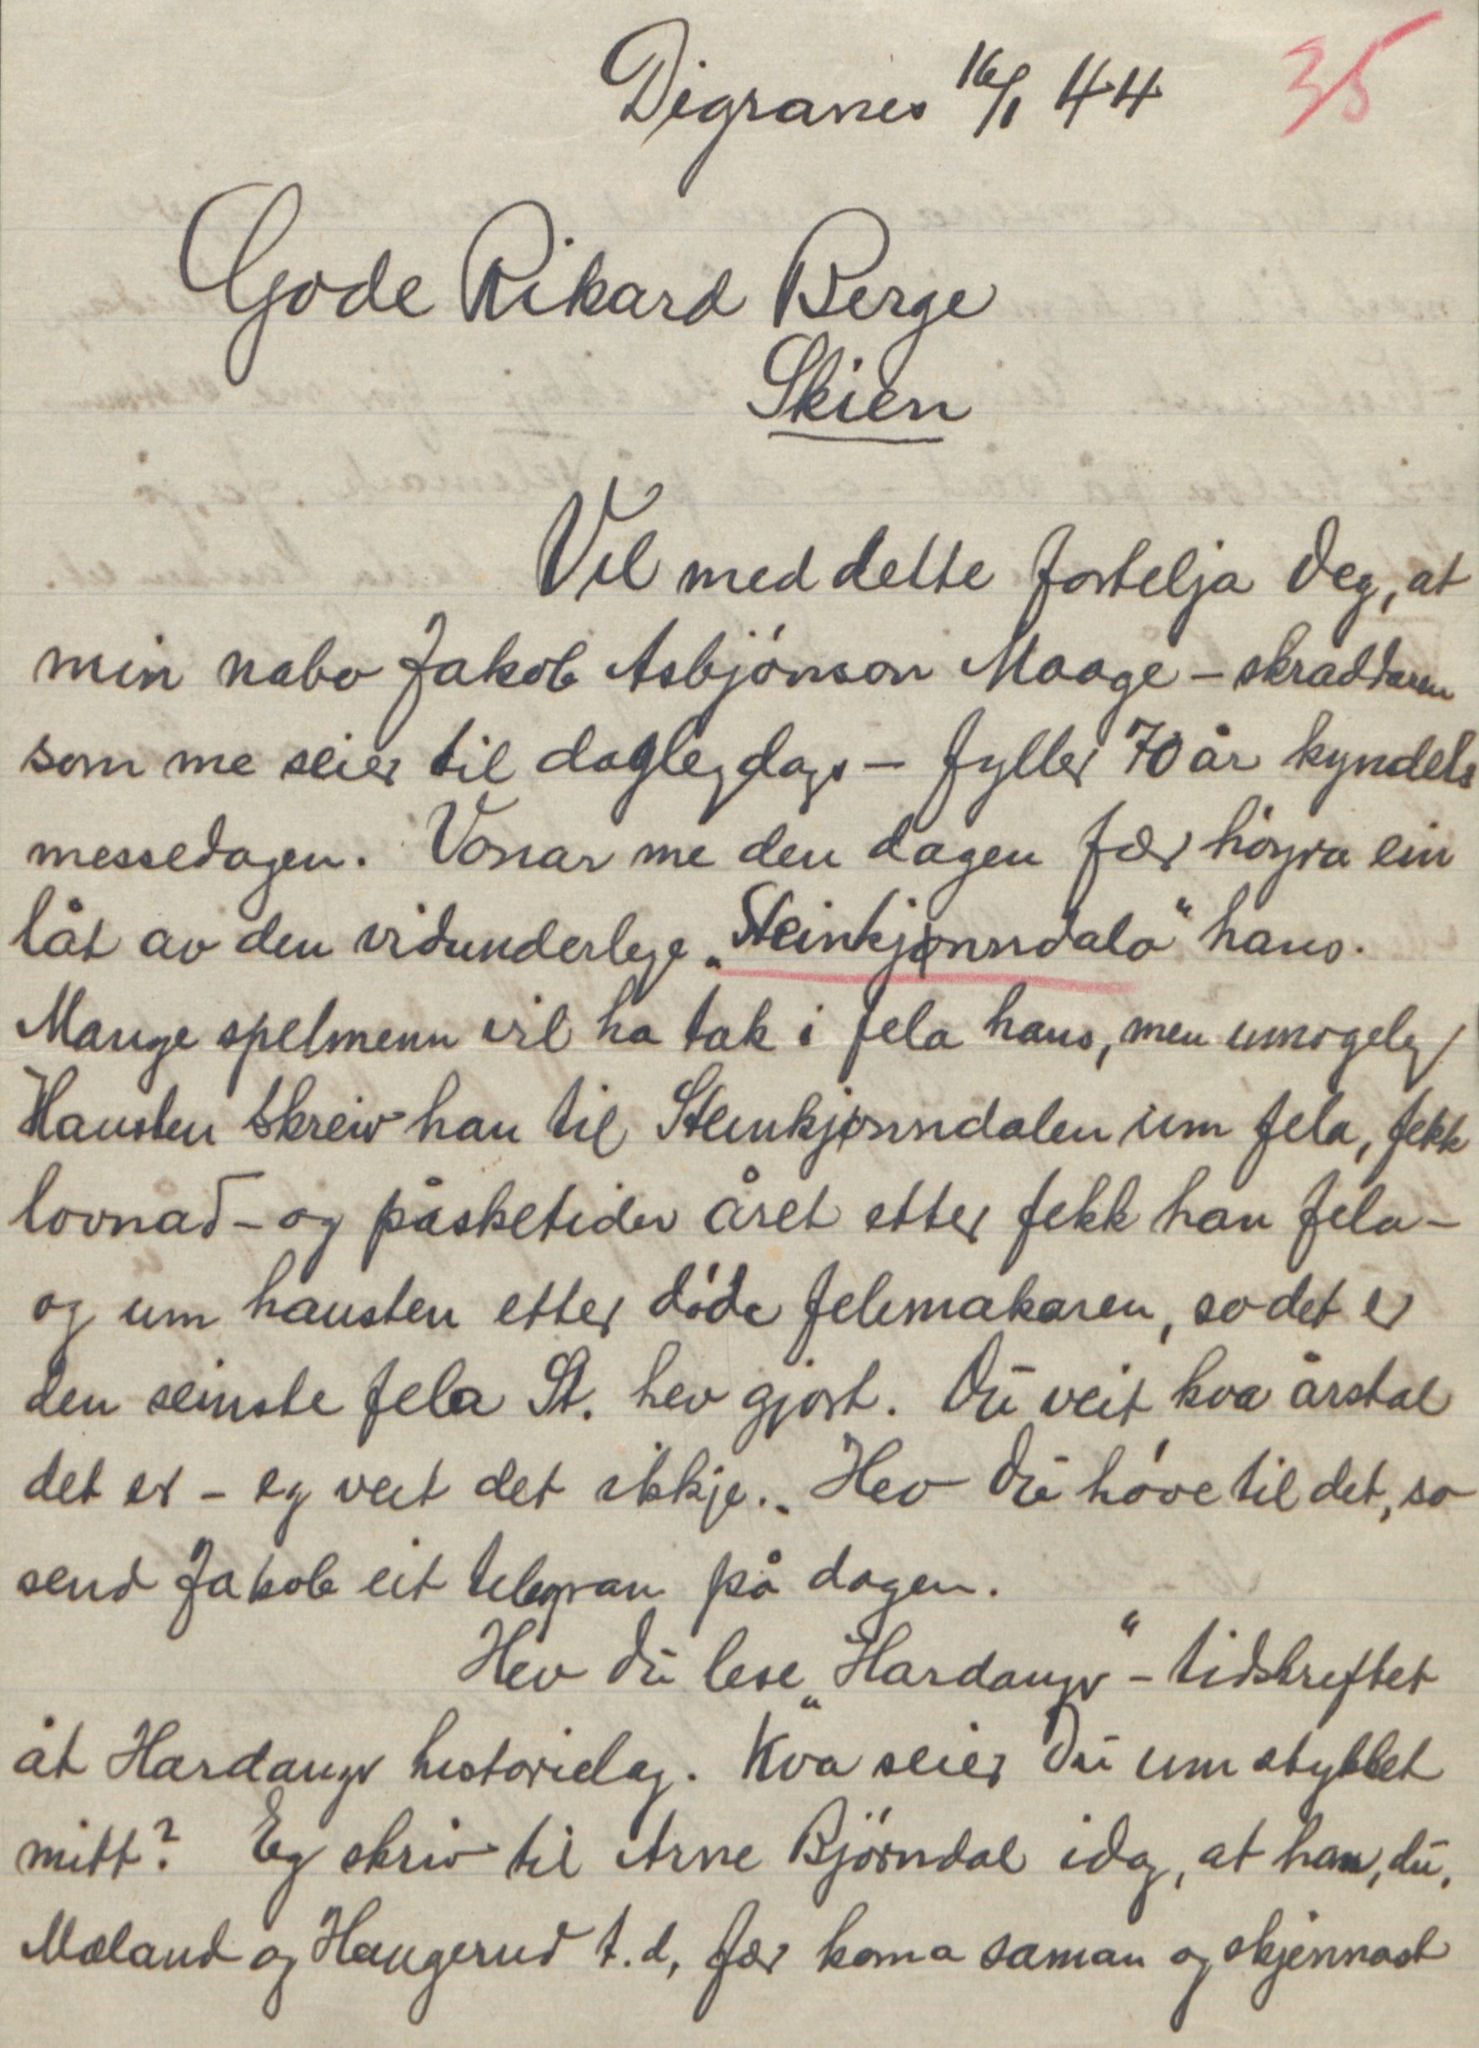 Digranes 16/1 44 35
Gode Rikard Berge
Skien
Vil med dette fortelja Deg, at
min nabo Jakob Asbjönson Maage - skraddaren
som me seier til daglegdags - fyller 70 år kyndels
messedagen. Vonar me den dagen fær höyra ein
låt av den vidunderlege „Steinkjønndalo" hans.
Mange spelmenn vil ha tak i fela hans, men umogeleg
Hausten skreiv han til Steinkjønndalen um fela, fekk
lovnad - og påsketider året etter fekk han fela -
og um hausten etter döde felemakaren, so det er
den seinste fela St. hev gjort. Du veit kva årstal
det er - eg veit det ikkje. Hev Du höve til det, so
send Jakob eit telegram på dagen.
Hev Du lese „Hardanger" - tidskriftet
åt Hardanger historielag. Kva seier Du um stykket
mitt? Eg skriv til Arne Björndal idag, at han, du,
Mæland og Haugerud t.d, fær koma saman og skjennast